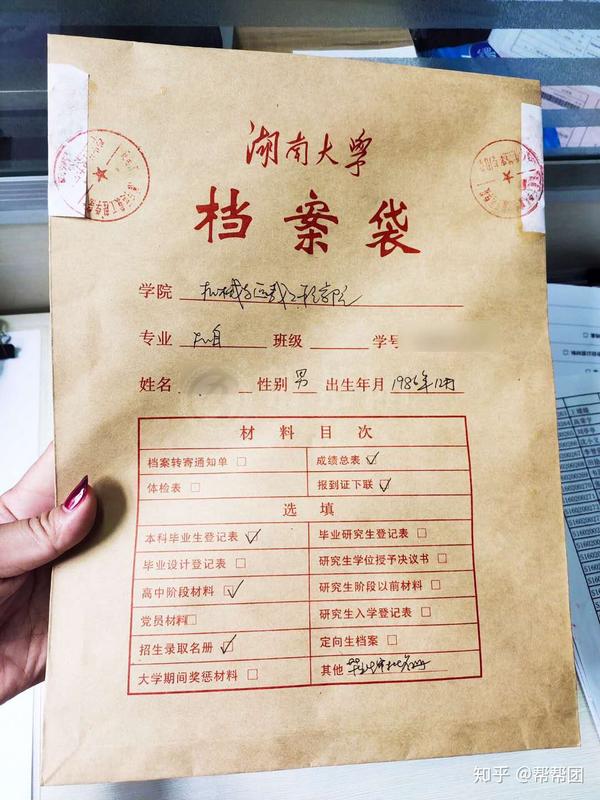 湖南大学
档案袋
学院 机械与运载工程学院
专业 机自 班级 学号
姓名 性别 男 出生年月 1986年12月
材料目次
档案转寄通知单 □ 成绩总表 ☑
体检表 □ 报到证下联 ☑
选填
本科毕业生登记表 ☑ 毕业研究生登记表 □
毕业设计登记表 □ 研究生学位授予决议书 □
高中阶段材料 ☑ 研究生阶段以前材料 □
党员材料 □ 研究生入学登记表 □
招生录取名册 ☑ 定向生档案 □
大学期间奖惩材料 □ 其他
知乎 @帮帮团